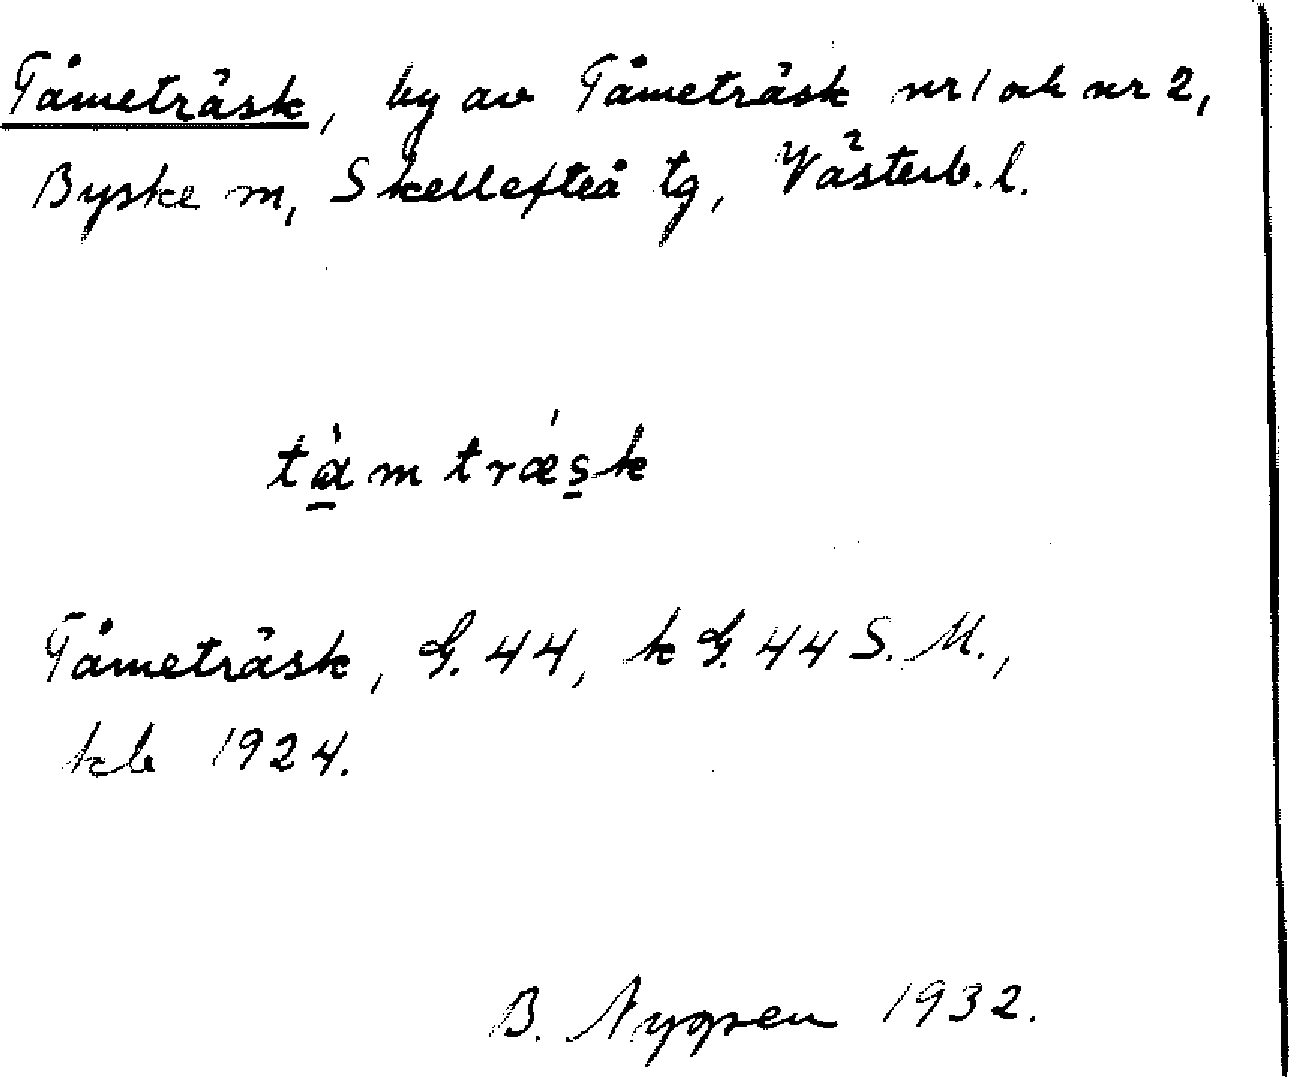 Tåmeträsk, by av Tåmeträsk nr 1 och nr 2,
Byske m, Skellefteå tg, Västerb. l.
tà̱m træ´s̱k
Tåmeträsk, G. 44, k G. 44 S. M.,
kb 1924.
B. Nygren 1932.